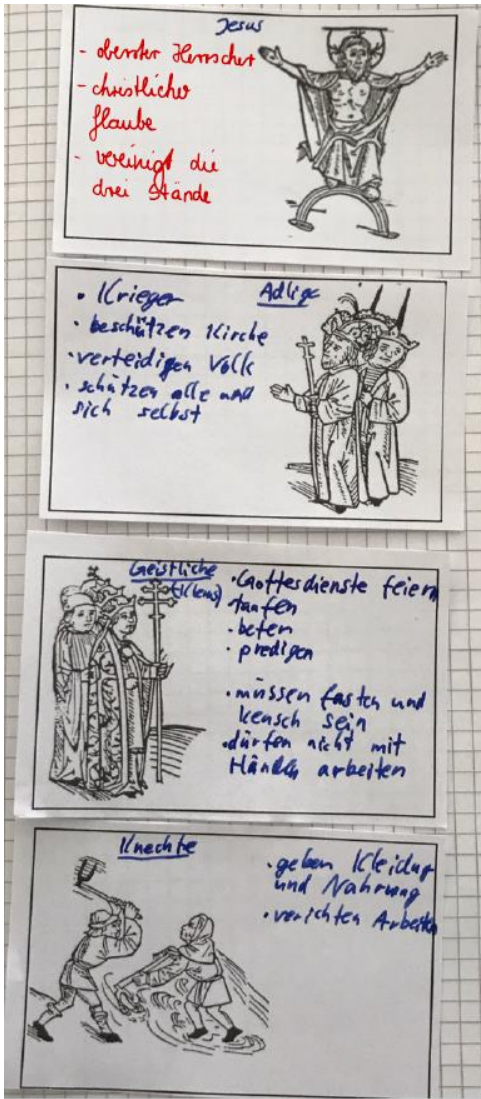 Jesus
- oberster Herrscher
- christlicher
Glaube
- vereinigt die
drei Stände
Adlige
• Krieger
• beschützen Kirche
• verteidigen Volk
• schützen alle und
sich selbst
Geistliche
(Klerus)
• Gottesdienste feiern
taufen
• beten
• predigen
• müssen fasten und
keusch sein
• dürfen nicht mit
Händen arbeiten
Knechte
• geben Kleidung
und Nahrung
• verichten Arbeiten